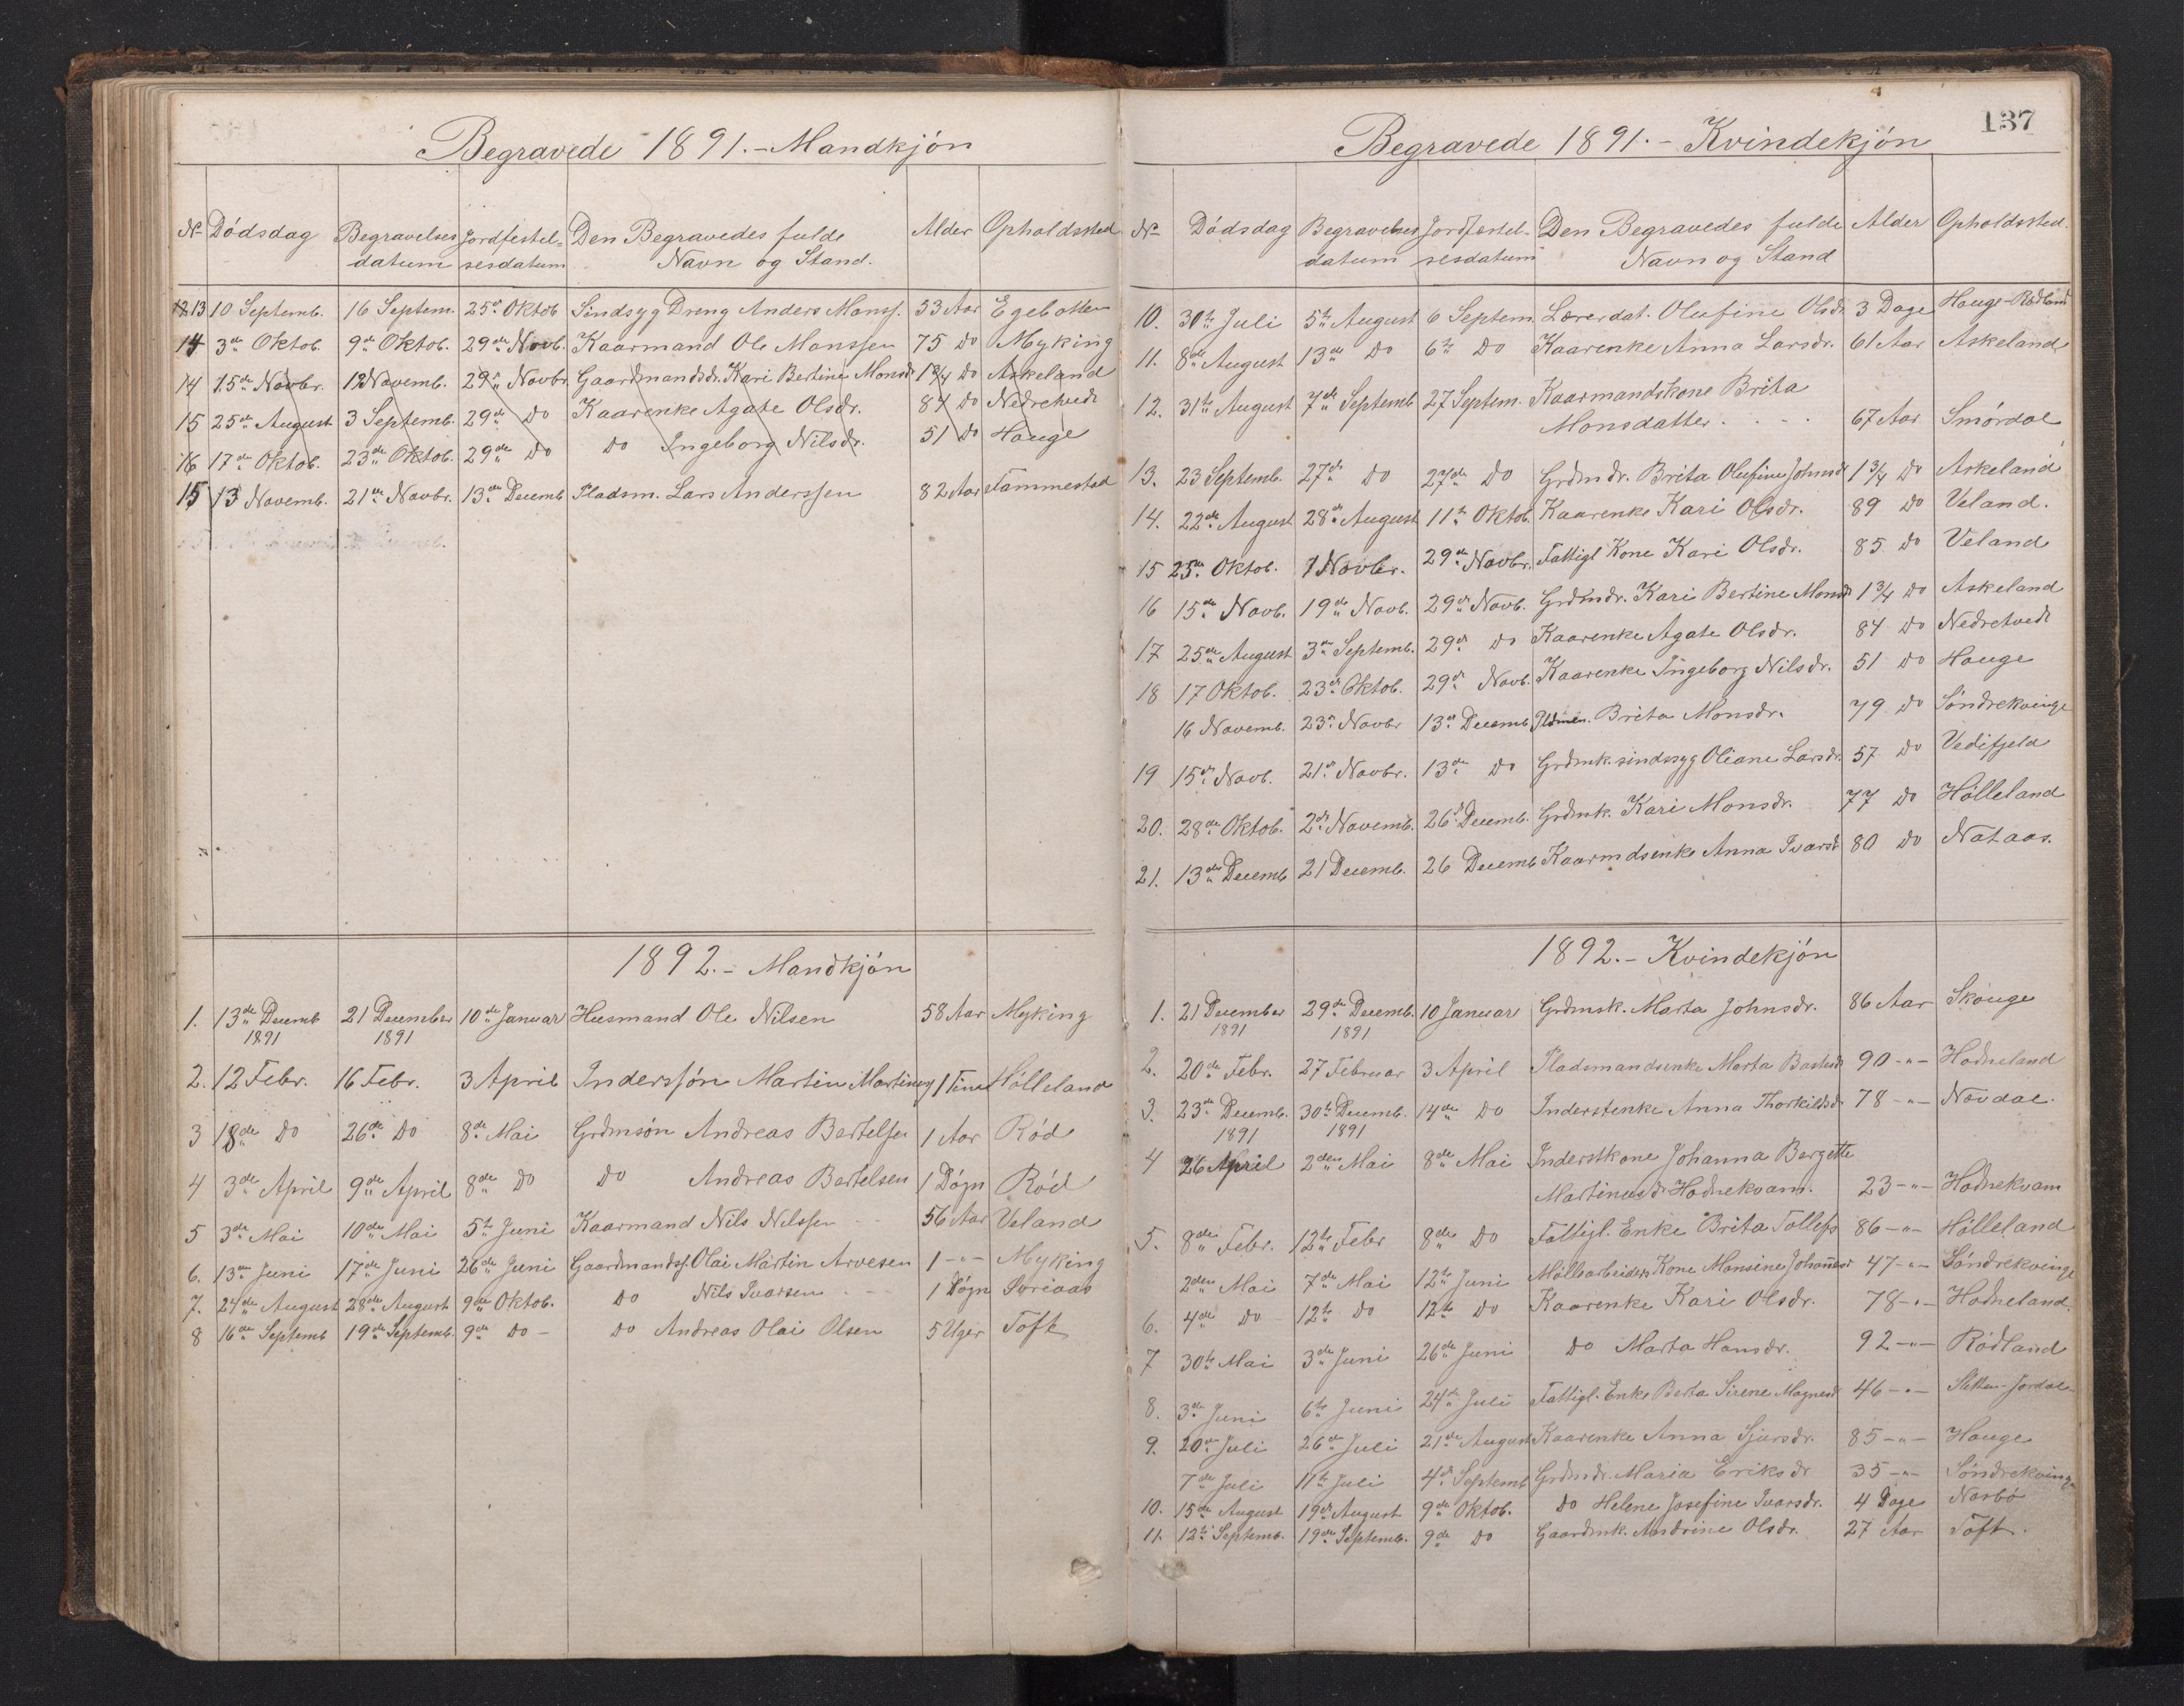 Begravede 1891. - Mandkjön
No Dödsdag Begravelses Jordfestel- Den Begravedes fulde Alder Opholdssted
datum sesdatum Navn og Stand.
13 10 Septemb. 16 Septem. 25de Oktob Sindsyg Dreng Anders Monss. 53 Aar Egebotten
14 3de Oktob. 9de Oktob. 29de Novb. Kaarmand Ole Monssen 75 Do Myking
14 15de Novbr. 19 Novemb. 29de Novbr. Gaardmandsdr. Kari Bertine Monsdr 1 3/4 Do Askeland
15 25de August 3 Septemb. 29de Do Kaarenke Agate Olsdr. 84 Do Nedretvedt
16 17de Oktob. 23de Oktob. 29de Do Do Ingeborg Nilsdr. 51 Do Hauge
15 13 Novemb. 21de Novbr. 13de Decemb Pladsm. Lars Anderssen 82 Aar Tammestad
1892. - Mandkjön
1. 13de Decemb 21 December 10de Januar Husmand Ole Nilsen 58 Aar Myking
1891 1891
2. 12 Febr. 16 Febr. 3 April Inderssön Martin Martinus 1 Time Hölleland
3 18de Do 26de Do 8de Mai Grdmsön Andreas Bertelsen 1 Aar Röd
4 3de April 9de April 8de Do Do Andreas Bertelsen 1 Dögn Röd
5 3de Mai 10de Mai 5te Juni Kaarmand Nils Nilssen 56 Aar Veland
6. 13de Juni 17de Juni 26de Juni Gaardmandss. Olai Martin Arvesen 1 -"- Myking
7. 24de August 28de August 9de Oktob. Do Nils Ivarsen 1 Dögn
8 16de Septemb 19de Septemb. 9de Do - Do Andreas Olai Olsen 5 Uger Toft
137
Begravede 1891. - Kvindekjön
No Dödsdag Begravelses Jordfestel- Den Begravedes fulde Alder Opholdssted.
datum sesdatum Navn og Stand
10. 30te Juli 5te August 6 Septem. Lærerdat. Olufine Olsdr. 3 Dage Hauge-Rödland
11. 8de August 13de Do 6te Do Kaarenke Anna Larsdr. 61 Aar Askeland
12. 31te August 7de Septemb 27 Septem. Kaarmandskone Brita
Monsdatter . . . 67 Aar Smördal
13. 23 Septemb. 27de Do 27de Do Grdmdr. Brita Olufine Johnsdr 1 3/4 Do Askeland
14. 22de August 28de August 11te Oktob. Kaarenke Kari Olsdr. 89 Do Veland.
15 25de Oktob. 1 Novbr. 29de Novbr. Fattigl Kone Kari Olsdr. 85 Do Veland
16 15de Novb. 19de Novb. 29de Novb. Grdmdr. Kari Bertine Monsdr 1 3/4 Do Askeland
17 25de August 3de Septemb. 29de Do Kaarenke Agate Olsdr. 84 Do Nedretvedt
18 17 Oktob. 23de Oktob. 29de Novb. Kaarenke Ingeborg Nilsdr. 51 Do Hauge
16 Novemb. 23de Novbr 13de Decemb Brita Monsdr. 79 Do Söndrekvinge
19 15de Novb. 21de Novbr. 13de Do Grdmk. sindssyg Oliane Larsdr. 57 Do Vedifjeld
20. 28de Oktob. 2de Novemb. 26de Decemb. Grdmk. Kari Monsdr. 77 Do Hölleland
21. 13de Decemb 21 Decemb. 26 Decemb Kaarmdsenke Anna Ivarsdr 80 Do Nataas.
1892. - Kvindekjön
1. 21 December 29de Decemb. 10 Januar Grdmsk. Marta Johnsdr. 86 Aar Skauge
1891 1891
2. 20de Febr. 27 Februar 3 April Pladsmandsenke Marta 90 -"- Hodneland
3. 23de Decemb. 30te Decemb. 14de Do Inderstenke Anna Thorkildsdr. 78 -"- Növdal.
1891 1891
4 26 April 2den Mai 8de Mai Inderstkone Johanna Bergitte
Martinusdr Hodnekvam. 23 -"- Hodnekvam
5. 8de Febr. 12te Febr 8de Do Fattigl. Enke Brita Tollefs 86 -"- Hölleland
2den Mai 7de Mai 12te Juni Möllearbeiders Kone Monsine Johannesdr 47 -"- Söndrekvinge
6. 4de Do 12te Do 12te Do Kaarenke Kari Olsdr. 78 -"- Hodneland.
7 30te Mai 3de Juni 26de Juni Do Marta Hansdr. 92 -"- Rödland
8. 3de Juni 6te Juni 24de Juli Fattigl. Enke Berta Sirene Magnesdr 46 -"- Jordal
9. 20de Juli 26de Juli 21de August Kaarenke Anna Sjursdr. 85 -"- Hauge
7de Juli 11te Juli 4de Septemb Grdmdr. Maria Eriksdr 35 -"- Söndrekvinge
10. 15de August 19de August 9de Oktob. Do Helene Josefine Ivarsdr. 4 Dage Norbö
11. 12te Septemb. 19de Septemb. 9de Do Gaardmk. Andrine Olsdr. 27 Aar Toft.